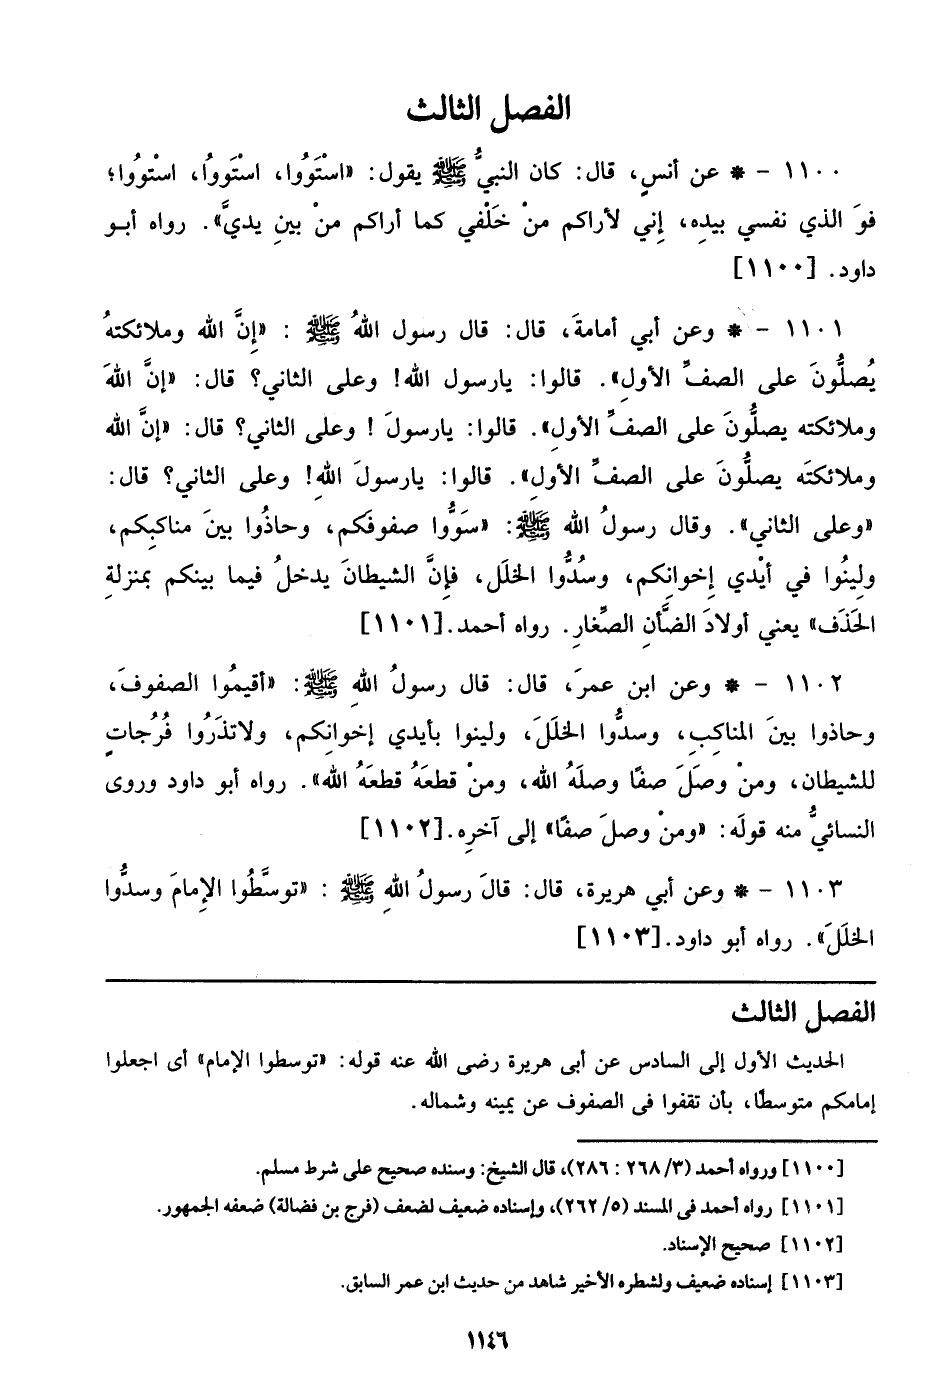 الفصل الثالث
١١٠٠ - * عن أنسٍ، قال: كان النبيُّ ﷺ يقول: «اسْتَوُوا، اسْتَووُا، اسْتوُوا؛
فوَ الذي نفسي بيدِه، إني لأراكم منْ خَلْفي كما أراكم منْ بينِ يديَّ». رواه أبو
داود. [١١٠٠]
١١٠١ - * وعن أبي أمامةَ، قال: قال رسول اللهُ ﷺ : «إنَّ الله وملائكتهُ
يُصلُّونَ على الصفِّ الأولِ». قالوا: يارسول الله! وعلى الثاني؟ قال: «إنَّ اللهَ
وملائكته يصلُّونَ على الصفِّ الأولِ». قالوا: يارسولَ ! وعلى الثاني؟ قال: «إنَّ الله
وملائكتَه يصلُّونَ على الصفِّ الأولِ». قالوا: يارسولَ اللهِ! وعلى الثاني؟ قال:
«وعلى الثاني». وقال رسولُ الله ﷺ: «سَوُّوا صفوفَكم، وحاذُوا بينَ مناكبِكم،
ولِينُوا في أيْدي إِخوانِكم، وسُدُّوا الخلَل، فإنَّ الشيطانَ يدخلُ فيما بينكم بمنزلةِ
الحَذَف» يعني أولادَ الضَّأنِ الصِّغارِ. رواه أحمد.[١١٠١]
١١٠٢ - * وعن ابن عمرَ، قال: قال رسولُ اللهِ ﷺ: «أقيمُوا الصفوفَ،
وحاذوا بينَ المناكِبِ، وسدُّوا الخلَلَ، ولينوا بأيدي إخوانِكم، ولاتذَرُوا فُرُجاتٍ
للشيطان، ومنْ وصَلَ صفًا وصلَهُ الله، ومنْ قطعَهُ قطعَهُ الله». رواه أبو داود وروى
النسائيُّ منه قولَه: «ومنْ وصلَ صفًا» إلى آخرِه.[١١٠٢]
١١٠٣ - * وعن أبي هريرة، قال: قالَ رسولُ اللهِ ﷺ : «توسَّطُوا الإِمامَ وسدُّوا
الخلَلَ». رواه أبو داود.[١١٠٣]
الفصل الثالث
الحديث الأول إلى السادس عن أبى هريرة رضى الله عنه قوله: «توسطوا الإمام» أى اجعلوا
إمامكم متوسطًا، بأن تقفوا فى الصفوف عن يمينه وشماله.
[١١٠٠] ورواه أحمد (٣/ ٢٦٨ : ٢٨٦)، قال الشيخ: وسنده صحيح على شرط مسلم.
[١١٠١] رواه أحمد فى المسند (٥/ ٢٦٢)، وإسناده ضعيف لضعف (فرج بن فضالة) ضعفه الجمهور.
[١١٠٢] صحيح الإسناد.
[١١٠٣] إسناده ضعيف ولشطره الأخير شاهد من حديث ابن عمر السابق.
١١٤٦